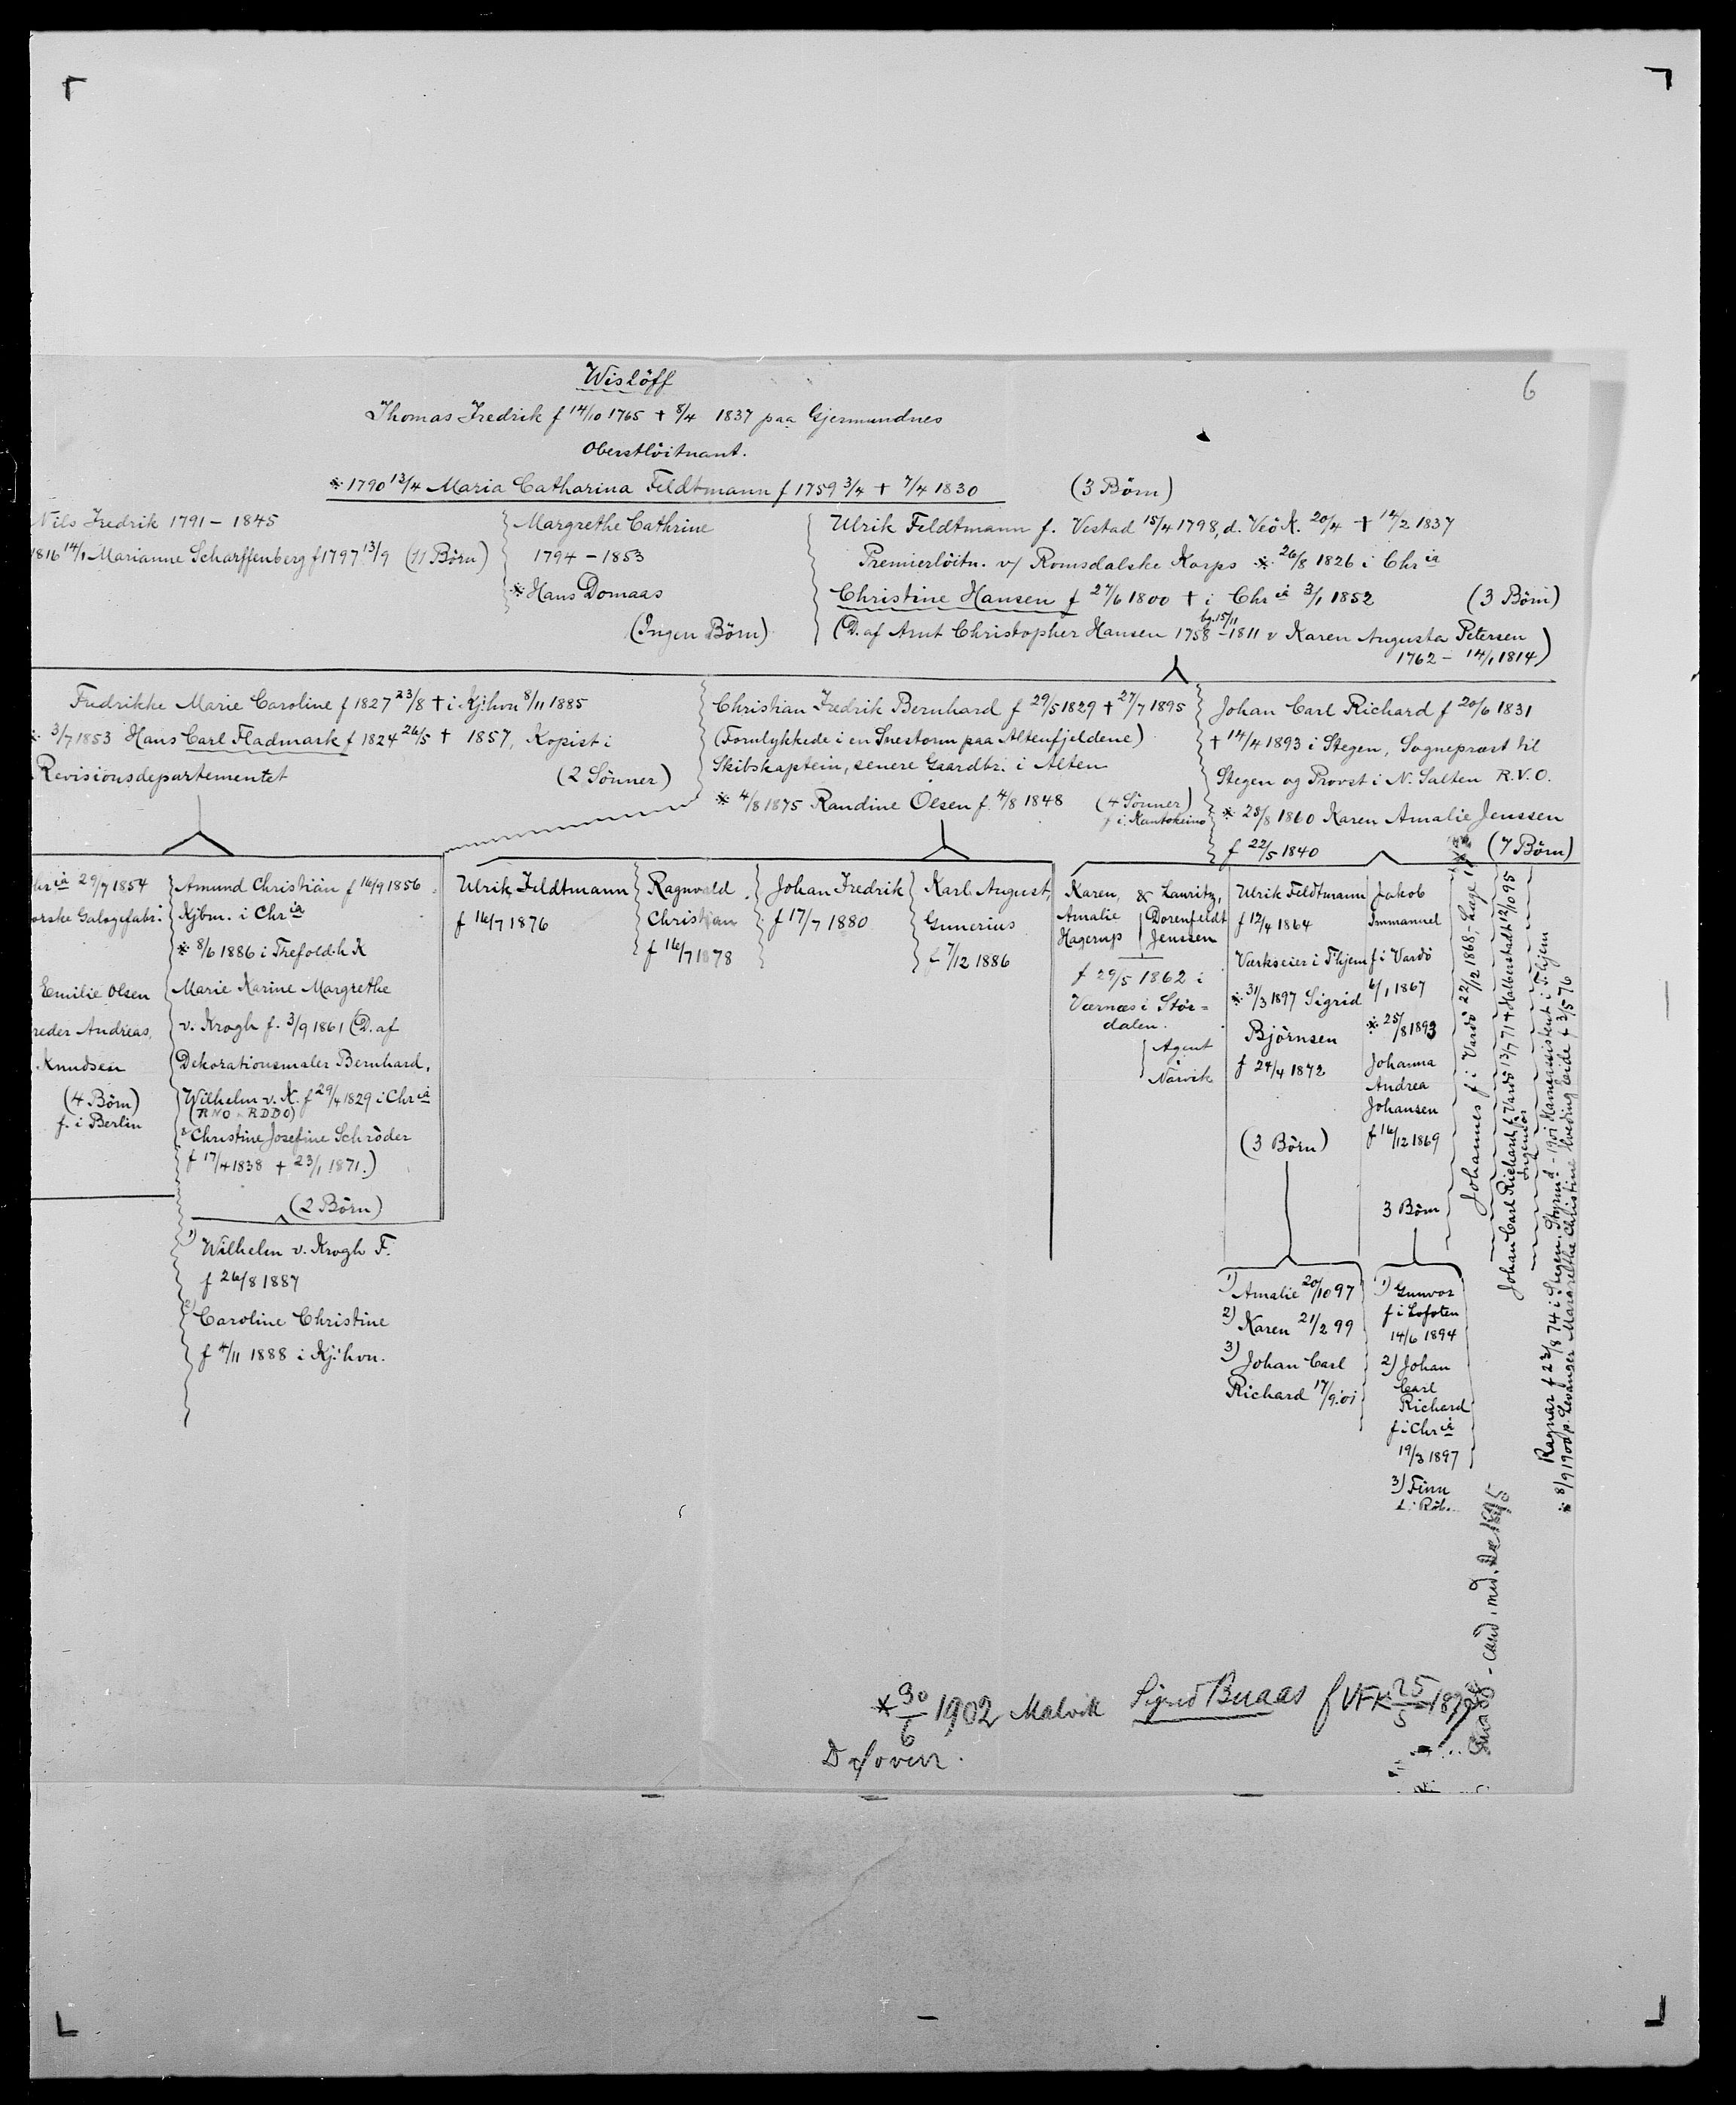 6
Wislöff
Thomas Fredrik f 14/10 1765 † 8/4 1837 paa Gjermundnes
Oberstlöitnant.
※ 1790 13/4 Maria Catharina Feldtmann f 1759 3/4 † 7/4 1830 (3 Börn)
Nils Fredrik 1791 - 1845
1816 14/1 Marianne Scharffenberg f 1797 13/9 (11 Börn)
Margrethe Cathrine
1794 - 1853
※ Hans Domaas
(Ingen Börn)
Ulrik Feldtmann f. Vestad 15/4 1798, d. Veö K. 20/4 † 14/2 1837
Premierlöitn. v/ Romsdalske Korps ※ 26/8 1826 i Chr ia
Christine Hansen f 27/6 1800 † i Chr ia 3/1 1852 (3 Börn)
(D. af Arnt Christopher Hansen 1758 - bg. 15/11 1811 v Karen Augusta Petersen
1762 - 14/1 1814)
Fredrikke Marie Caroline f 1827 23/8 † i Kj:hvn 8/11 1885
※ 3/7 1853 Hans Carl Fladmark f 1824 26/5 † 1857, Kopist i
Revisionsdepartementet (2 Sönner)
Christian Fredrik Bernhard f 29/5 1829 † 27/7 1895
(Forulykkede i en Snestorm paa Altenfjeldene)
Skibskaptein, senere Gaardbr. i Alten
※ 4/8 1875 Randine Olsen f. 4/8 1848 (4 Sönner)
f i. Kautokeino
Johan Carl Richard f 20/6 1831
† 14/4 1893 i Stegen, Sognepræst til
Stegen og Provst i N. Salten R.V.O.
※ 28/8 1860 Karen Amalie Jenssen
f 22/5 1840 (7 Börn)
Chr ia 29/7 1854
orske Galogefabr.
Emilie Olsen
reder Andreas,
Knudsen
(4 Börn)
f. i Berlin
Amund Christian f 16/9 1856
Kjbm. i Chr ia
※ 8/6 1886 i Trefold.h K
Marie Karine Margrethe
v. Krogh f. 3/9 1861 (D. af
Dekorationsmaler Bernhard,
Wilhelm v. K. f 29/4 1829 i Chr ia
(RNO RDDO)
& Christine Josefine Schröder
f 17/4 1838 † 23/1 1871.)
(2 Börn)
1) Wilhelm v. Krogh F.
f 26/8 1887
2) Caroline Christine
f 4/11 1888 i Kj:hvn.
Ulrik Feldtmann
f 16/7 1876
Ragnvald
Christian
f 16/7 1878
Johan Fredrik
f 17/7 1880
Karl August,
Gunerius
f 7/12 1886
Karen, & Lauritz,
Amalie Dorenfeldt
Hagerup Jenssen
f 29/5 1862 i
Værnæs i Stör=
dalen.
Agent
Narvik
Ulrik Feldtmann
f 12/4 1864
Værkseier i T'hjem
※ 31/3 1897 Sigrid
Björnsen
f 24/4 1872
(3 Börn)
1) Amalie 20/10 97
2) Karen 21/2 99
3) Johan Carl
Richard 17/9.01
Jakob
Immanuel
f i Vardö
6/1 1867
※ 25/8 1893
Johanna
Andrea
Johansen
f 16/12 1869
3 Börn
1) Gunvor
f i Lofoten
14/6 1894
2) Johan
Carl
Richard
f i Chr ia
19/3 1897
3) Finn
Johannes f i Vardö 22/12 1868, - Læge
cand. med. 1895
Johan Carl Richard f Vardö 13/7 71 † Halberstadt 12/10 95
Ingeniör
Ragnar f 23/8 74 i Stegen. Styrm d - 1901 Havneassistent i T.hjem
※ 8/9 1900 p. Levanger Margrethe Christine Hveding Eide f 3/5 76
※ 30/6 1902 Malvik Sigrid Buaas f VFK 25/5 187
D af overr.